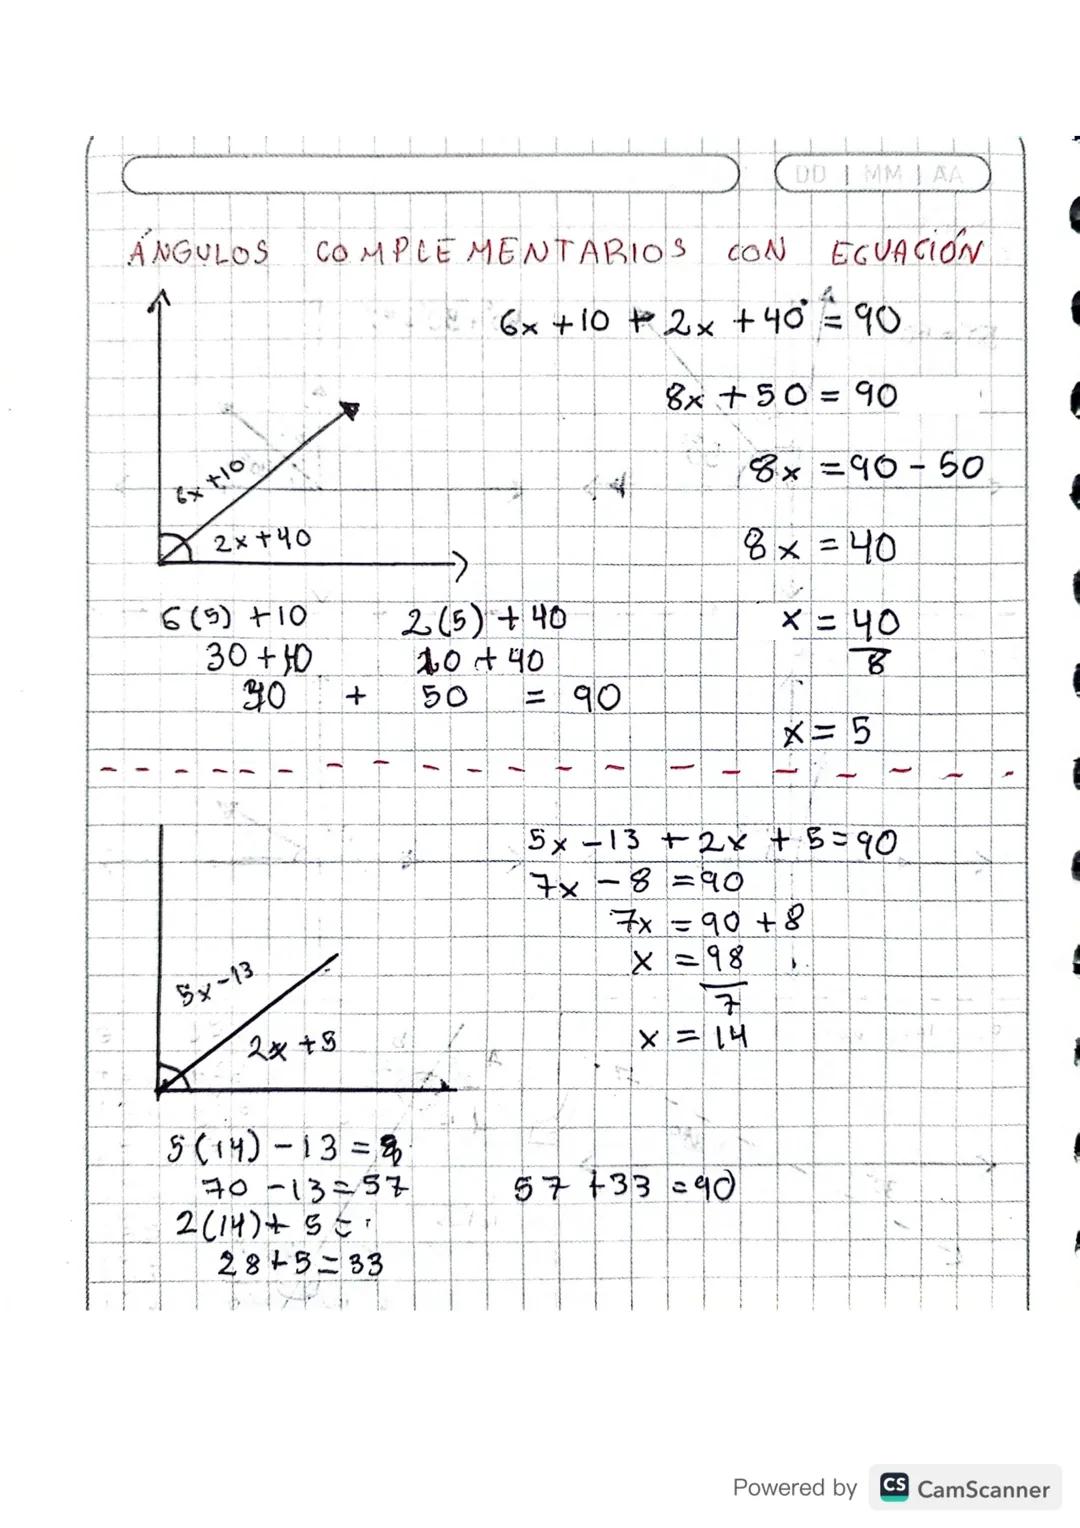 DD | MM | AA
ÁNGULOS COMPLEMENTARIOS CON ECUACIÓN
6x + 10 + 2x + 40° = 90
8x + 50 = 90
8x = 90 - 50
8x = 40
x = 40
8
x = 5
6x + 10
2x + 40
6(5) + 10 2(5) + 40
30 + 10 10 + 40
40 + 50 = 90
5x - 13 + 2x + 5 = 90
7x - 8 = 90
7x = 90 + 8
x = 98
7
x = 14
5x - 13
2x + 5
5(14) - 13 =
70 - 13 = 57 57 + 33 = 90
2(14) + 5 =
28 + 5 = 33
Powered by CS CamScanner